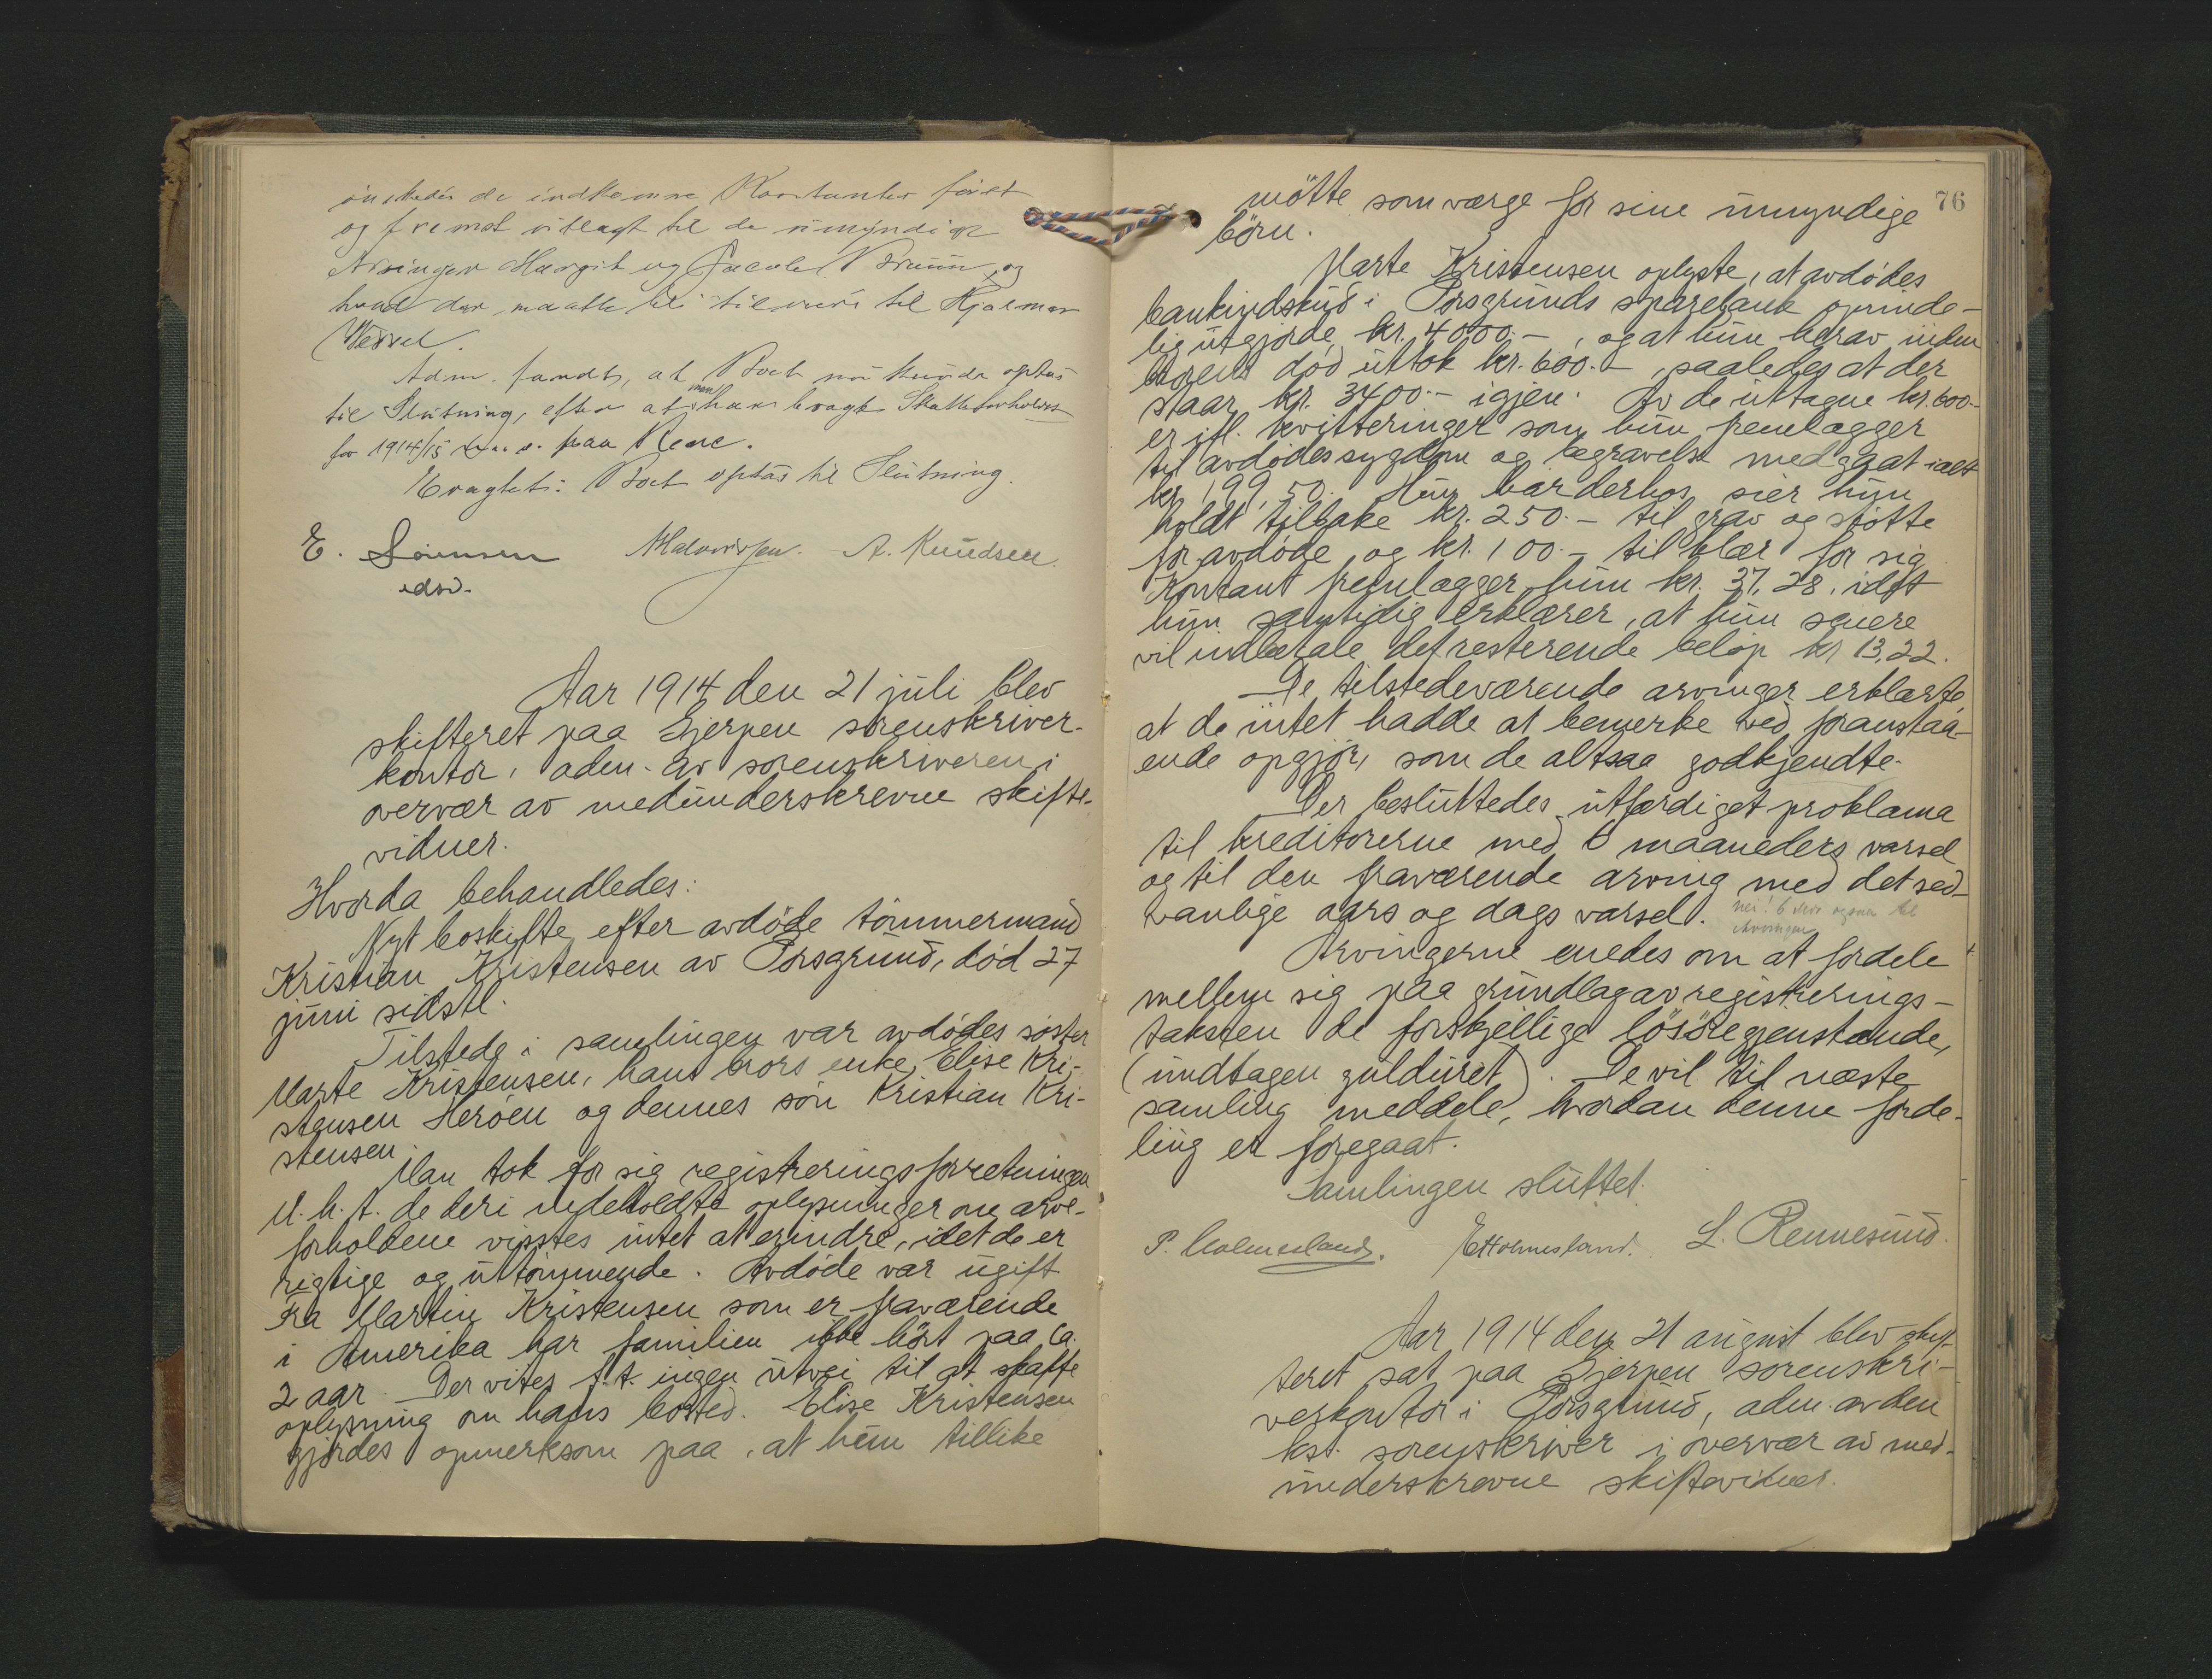 ønskedes de indkomne Kontanter først
og fremst utlagt til de umyndige
Arvinger Margit og Jacob Bruun, og
hvad der maatte bli tilovers til Hjalmar
Wessel.
Adm. fandt, at Boet nu kunde optas
til Slutning, efter at man har bragt Skatteforholdet
for 1914/15 paa Rene.
Eragtet: Boet optas til Slutning.
E. Sørensen Halvorsen. A. Knudsen.
edsv.
Aar 1914 den 21 juli blev
skifteret paa Gjerpen sorenskriver-
kontor, adm. av sorenskriveren i
overvær av medunderskrevne skifte-
vidner.
Hvorda behandledes:
Nyt boskifte efter avdøde tømmermand
Kristian Kristensen av Porsgrund, død 27
juni sidstl.
Tilstede i samlingen var avdødes søster
Marte Kristensen, hans brors enke Elise Kri-
stensen Herøen og dennes søn Kristian Kri-
stensen.
Man tok for sig registreringsforretningen
M. h. t. de deri indeholdte oplysninger om arve-
forholdene visstes intet at erindre, idet de er
rigtige og uttømmende. Avdøde var ugift
Fra Martin Kristensen som er fraværende
i Amerika har familien ikke hørt paa ca.
2 aar. Der vites f. t. ingen utvei til at skaffe
oplysning om hans bosted. Elise Kristensen
gjordes opmerksom paa, at hun tillike
76
møtte som værge for sine umyndige
børn.
Marte Kristensen oplyste, at avdødes
bankindskud i Porsgrunds sparebank oprinde-
lig utgjorde kr. 4000.-, og at hun herav inden
brorens død uttok kr. 600.-, saaledes at der
staar kr. 3400.- igjen. Av de uttagne kr. 600.-
er ifl. kvitteringer som hun fremlægger
til avdødes sygdom og begravelse medgaat ialt
kr. 199,50. Hun har derhos sier hun
holdt tilbake kr. 250.- til grav og støtte
for avdøde og kr. 100.- til klær for sig
Kontant fremlægger hun kr. 37,28, idet
hun samtidig erklærer, at hun senere
vil indbetale det resterende beløp kr 13,22.
De tilstedeværende arvinger erklærte,
at de intet hadde at bemerke ved franstaa-
ende opgjør, som de altsaa godkjendte.
Der besluttedes utfærdiget proklama
til kreditorerne med 6 maaneders varsel
og til den fraværende arving med det sed-
vanlige aars og dags varsel. nei! 6 mdr ogsaa til
Arvingen
Arvingerne enedes om at fordele
mellem sig paa grundlag av registrerings-
taksten de forskjellige løsøregjenstande,
(undtagen gulduret). De vil til næste
samling meddele, hvordan denne forde-
ling er foregaat.
Samlingen sluttet.
P. Holmesland. E Holmesland. L. Rennesund.
Aar 1914 den 21 august blev skif-
teret sat paa Gjerpen sorenskri-
verkontor i Porsgrund, adm. av den
kst. sorenskriver i overvær av med-
underskrevne skiftevidner.